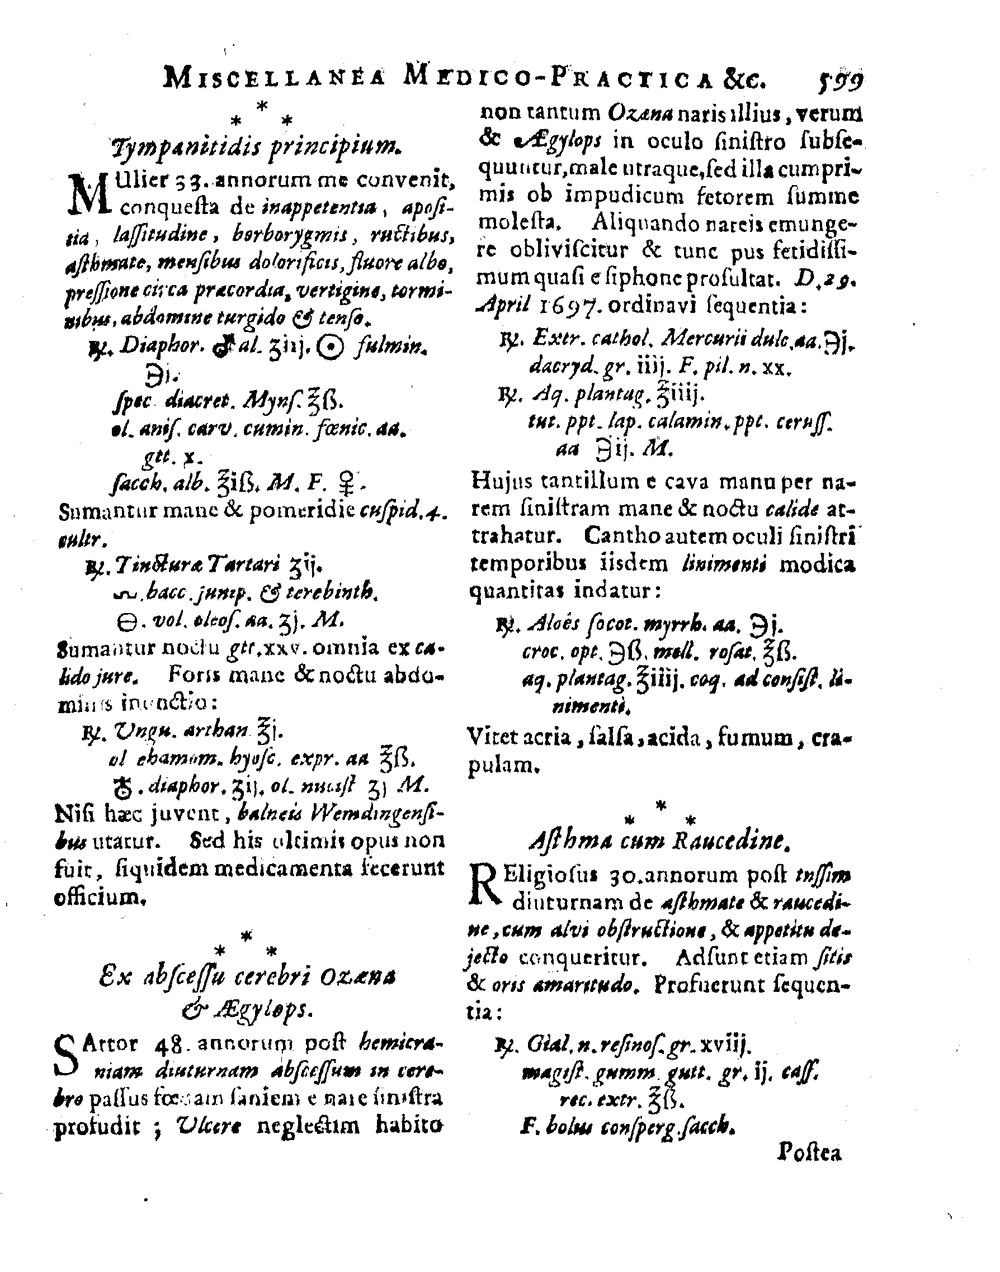 MISCELLANEA MEDICO-PRACTICA &c. 599
* * *
Tympanitidis principium.
MUlier 33. annorum me convenit,
conquesta de inappetentia, aposi-
tia, lassitudine, borborygmis, ructibus,
asthmate, mensibus dolorificis, fluore albo,
pressione circa præcordia, vertigine, tormi-
nibus, abdomine turgido & tenso.
℞. Diaphor. ♂al. ʒiij. ☉ fulmin.
℈j.
spec diacret. Mynſ. ℥ß.
ol. aniſ. carv. cumin. fœnic. aa.
gtt. x.
ſacch. alb. ℥iß. M. F. ♀.
Sumantur mane & pomeridie cuſpid. 4.
cultr.
℞. Tincturæ Tartari ʒij.
bacc. junip. & terebinth.
⊖. vol. oleoſ. aa. ʒj. M.
Sumantur noctu gtt. xxv. omnia ex ca-
lido jure. Foris mane & noctu abdo-
minis inunctio:
℞. Ungu. arthan ℥j.
ol chamom. hyoſc. expr. aa ℥ß.
♁. diaphor. ʒij. ol. nuciſt ʒj M.
Niſi hæc juvent, balneis Wemdingenſi-
bus utatur. Sed his ultimis opus non
fuit, ſiquidem medicamenta fecerunt
officium.
* * *
Ex abſceſſu cerebri Ozæna
& Ægylops.
SArtor 48. annorum poſt hemicra-
niam diuturnam abſceſſum in cere-
bro paſſus fœdam ſaniem e nare ſiniſtra
profudit; Ulcere neglectim habito
non tantum Ozæna naris illius, verum
& Ægylops in oculo ſiniſtro ſubſe-
quuntur, male utraque, ſed illa cumpri-
mis ob impudicum fetorem ſumme
moleſta. Aliquando nareis emunge-
re obliviſcitur & tunc pus fetidiſſi-
mum quaſi e ſiphone proſultat. D. 29.
April 1697. ordinavi ſequentia:
℞. Extr. cathol. Mercurii dulc. aa. ℈j.
dacryd. gr. iiij. F. pil. n. xx.
℞. Aq. plantag. ℥iiij.
tut. ppt. lap. calamin. ppt. ceruſſ.
aa ℈ij. M.
Hujus tantillum e cava manu per na-
rem ſiniſtram mane & noctu calide at-
trahatur. Cantho autem oculi ſiniſtri
temporibus iisdem linimenti modica
quantitas indatur:
℞. Aloës ſocot. myrrh. aa. ℈j.
croc. opt. ℈ß. mell. roſat. ℥ß.
aq. plantag. ℥iiij. coq. ad conſiſt. li-
nimenti.
Vitet acria, ſalſa, acida, fumum, cra-
pulam.
* * *
Aſthma cum Raucedine.
REligioſus 30. annorum poſt tuſſim
diuturnam de aſthmate & raucedi-
ne, cum alvi obſtructione, & appetitu de-
jecto conqueritur. Adſunt etiam ſitis
& oris amaritudo. Profuerunt ſequen-
tia:
℞. Gial. n. reſinoſ. gr. xviij.
magiſt. gumm. gutt. gr. ij. caſſ.
rec. extr. ℥ß.
F. bolus conſperg. ſacch.
Poſtea